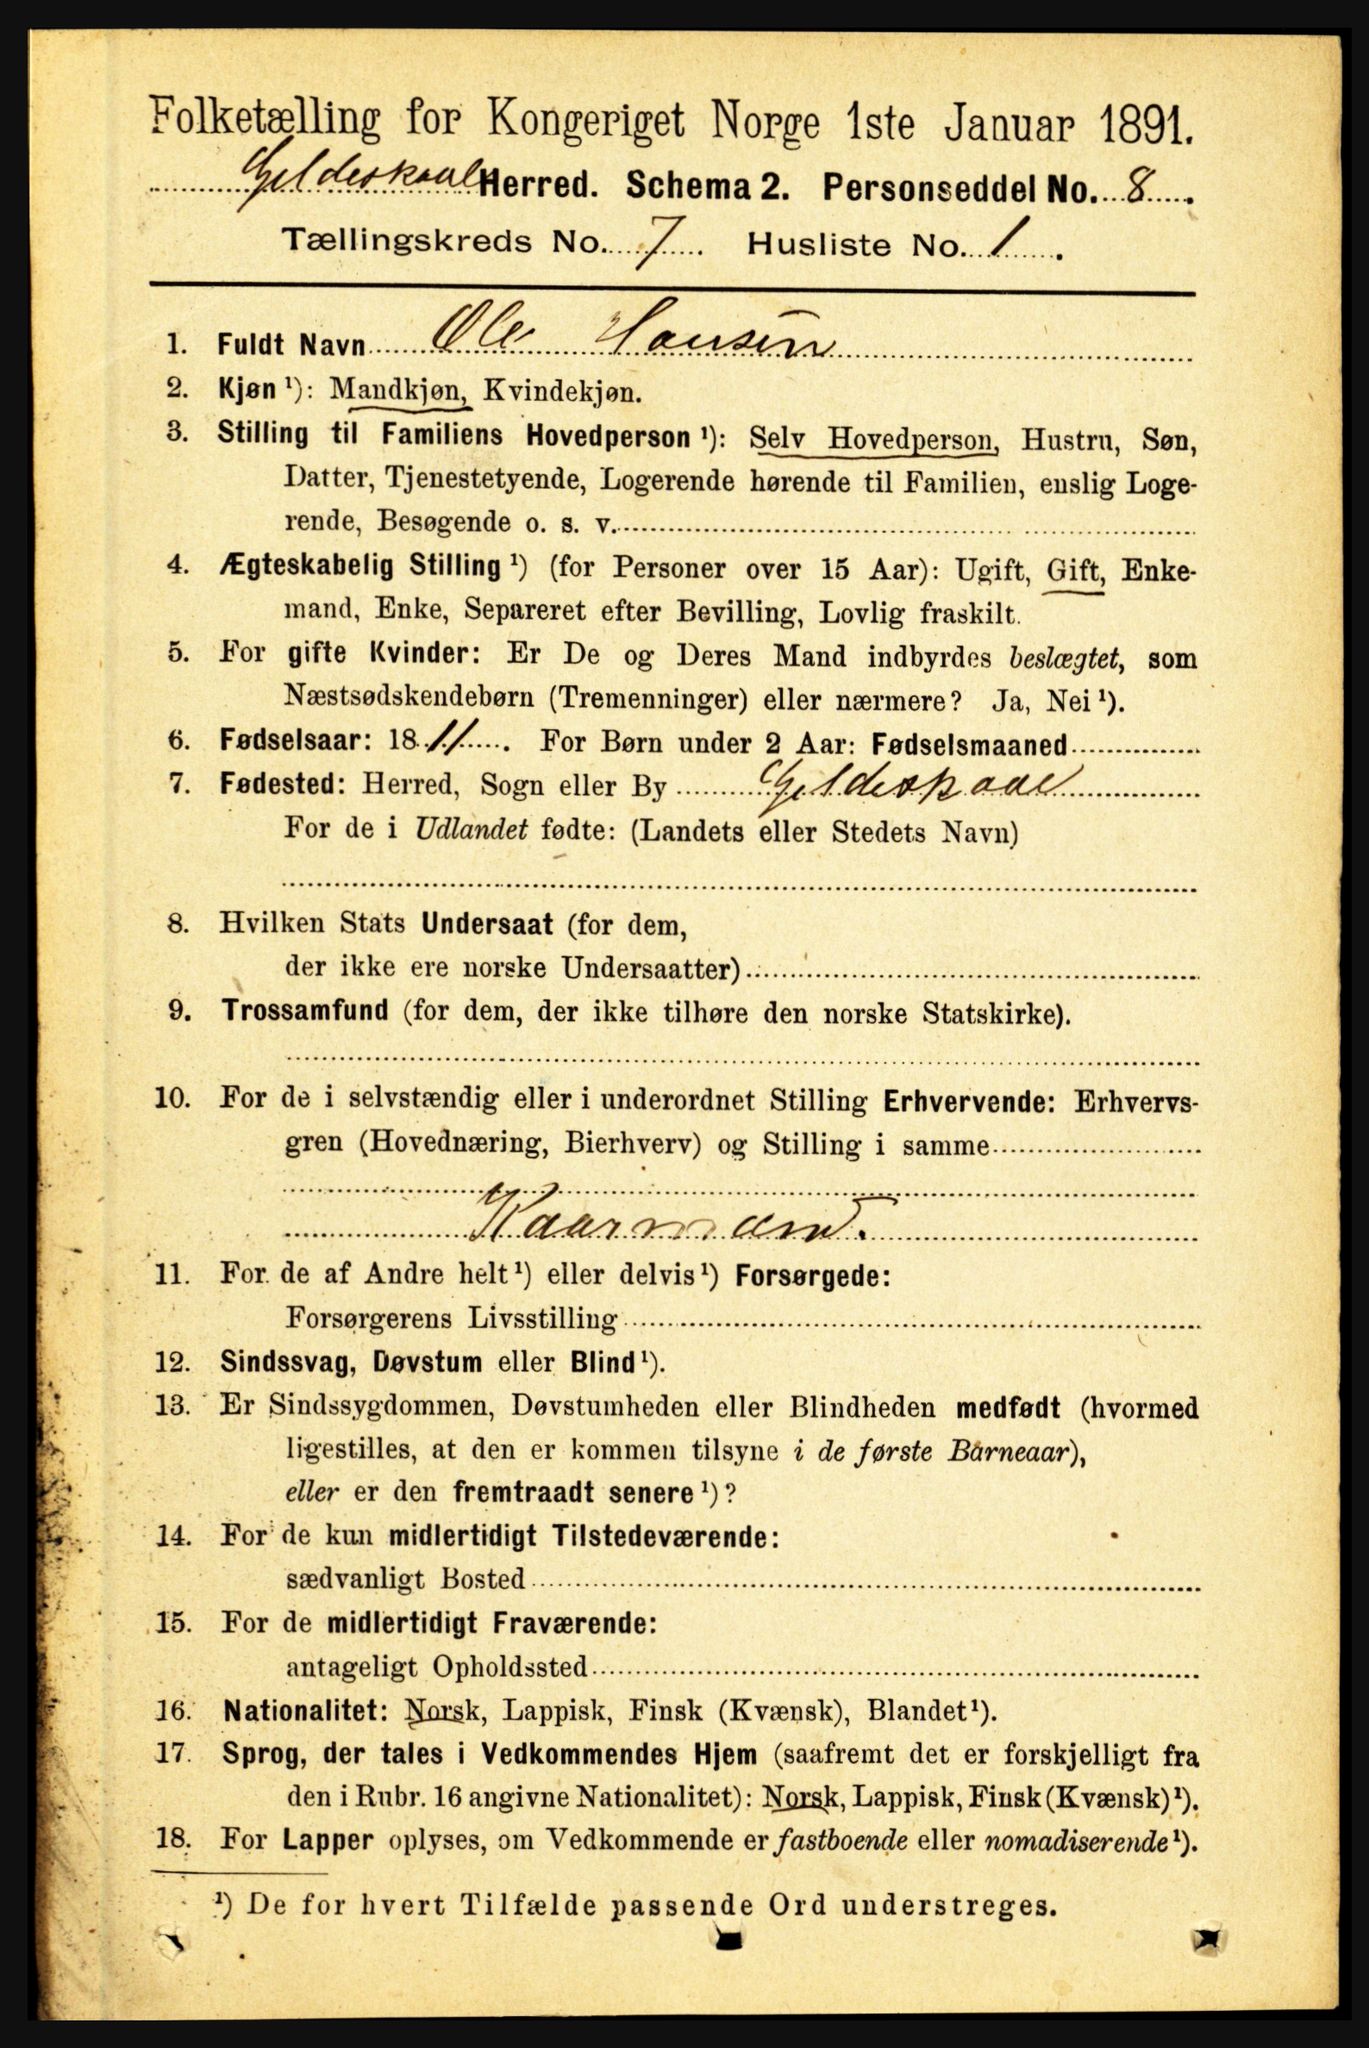 Folketælling for Kongeriget Norge 1ste Januar 1891.
Gildeskaal Herred. Schema 2. Personseddel No. 8.
Tællingskreds No. 7. Husliste No. 1.
1. Fuldt Navn Ole Hansen
2. Kjøn ¹): Mandkjøn, Kvindekjøn.
3. Stilling til Familiens Hovedperson ¹): Selv Hovedperson, Hustru, Søn,
Datter, Tjenestetyende, Logerende hørende til Familien, enslig Loge-
rende, Besøgende o. s. v.
4. Ægteskabelig Stilling ¹) (for Personer over 15 Aar): Ugift, Gift, Enke-
mand, Enke, Separeret efter Bevilling, Lovlig fraskilt.
5. For gifte Kvinder: Er De og Deres Mand indbyrdes beslægtet, som
Næstsødskendebørn (Tremenninger) eller nærmere? Ja, Nei ¹).
6. Fødselsaar: 1811. For Børn under 2 Aar: Fødselsmaaned
7. Fødested: Herred, Sogn eller By Gildeskaal
For de i Udlandet fødte: (Landets eller Stedets Navn)
8. Hvilken Stats Undersaat (for dem,
der ikke ere norske Undersaatter)
9. Trossamfund (for dem, der ikke tilhøre den norske Statskirke).
10. For de i selvstændig eller i underordnet Stilling Erhvervende: Erhvervs-
gren (Hovednæring, Bierhverv) og Stilling i samme
Kaarmand.
11. For de af Andre helt ¹) eller delvis ¹) Forsørgede:
Forsørgerens Livsstilling
12. Sindssvag, Døvstum eller Blind ¹).
13. Er Sindssygdommen, Døvstumheden eller Blindheden medfødt (hvormed
ligestilles, at den er kommen tilsyne i de første Barneaar),
eller er den fremtraadt senere ¹)?
14. For de kun midlertidigt Tilstedeværende:
sædvanligt Bosted
15. For de midlertidigt Fraværende:
antageligt Opholdssted
16. Nationalitet: Norsk, Lappisk, Finsk (Kvænsk), Blandet ¹).
17. Sprog, der tales i Vedkommendes Hjem (saafremt det er forskjelligt fra
den i Rubr. 16 angivne Nationalitet): Norsk, Lappisk, Finsk (Kvænsk) ¹).
18. For Lapper oplyses, om Vedkommende er fastboende eller nomadiserende ¹).
¹) De for hvert Tilfælde passende Ord understreges.